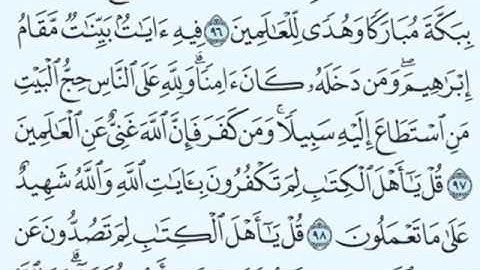 بِبَكَّةَ مُبَارَكًا وَهُدًى لِّلْعَالَمِينَ ٩٦ فِيهِ ءَايَاتٌ بَيِّنَاتٌ مَّقَامُ
إِبْرَاهِيمَ ۖ وَمَن دَخَلَهُۥ كَانَ ءَامِنًا ۗ وَلِلَّهِ عَلَى النَّاسِ حِجُّ الْبَيْتِ
مَنِ اسْتَطَاعَ إِلَيْهِ سَبِيلًا ۚ وَمَن كَفَرَ فَإِنَّ اللَّهَ غَنِيٌّ عَنِ الْعَالَمِينَ
٩٧ قُلْ يَا أَهْلَ الْكِتَابِ لِمَ تَكْفُرُونَ بِـَٔايَاتِ اللَّهِ وَاللَّهُ شَهِيدٌ
عَلَىٰ مَا تَعْمَلُونَ ٩٨ قُلْ يَا أَهْلَ الْكِتَابِ لِمَ تَصُدُّونَ عَن